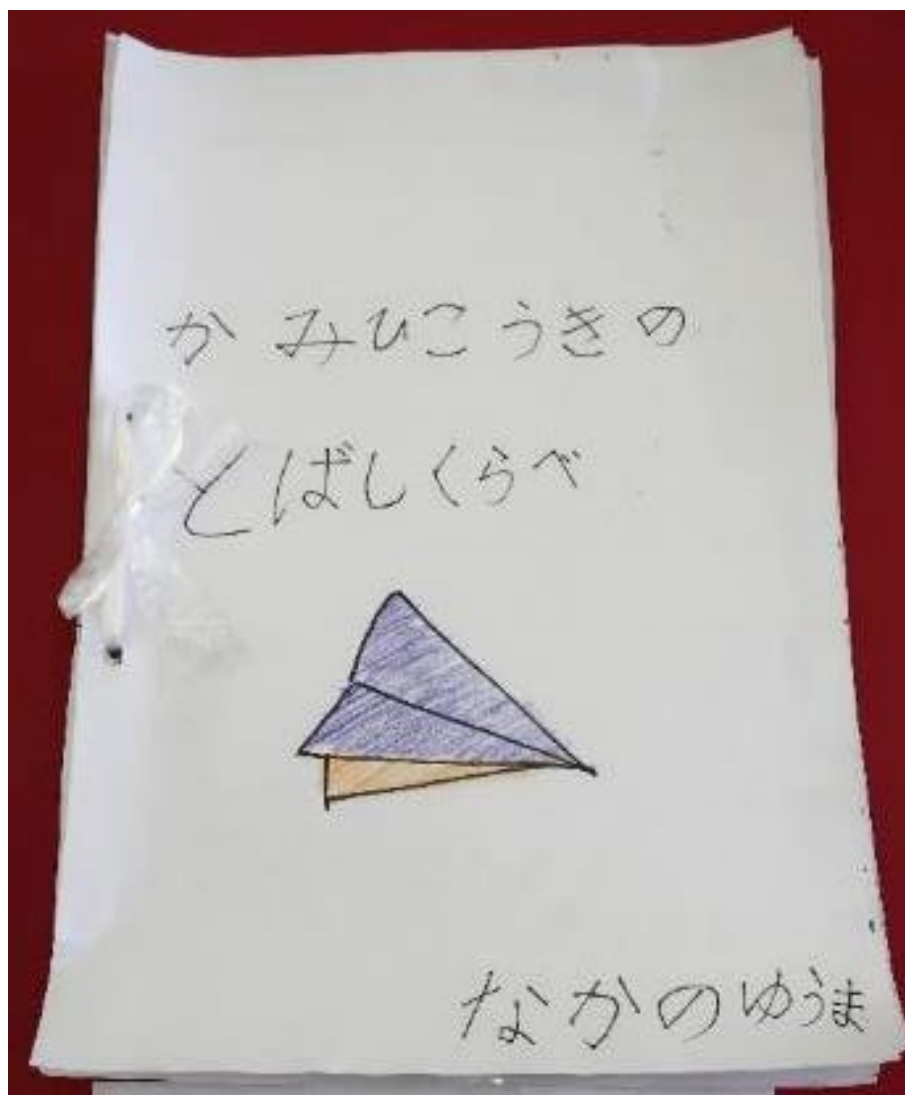 かみひこうきの
とばしくらべ
なかのゆうま